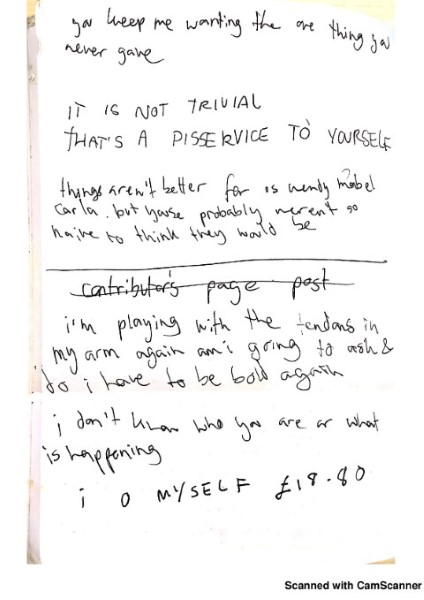 you keep me wanting the one thing you
never gave
IT IS NOT TRIVIAL
THAT'S A DISSERVICE TO YOURSELF
things aren't better for is wendy mabel
carla. but youse probably weren't so
naive to think they would be
contributor's page post
i'm playing with the tendons in
my arm again am i going to ask &
do i have to be bold again
i don't know who you are or what
is happening
i O MYSELF £18.80
Scanned with CamScanner